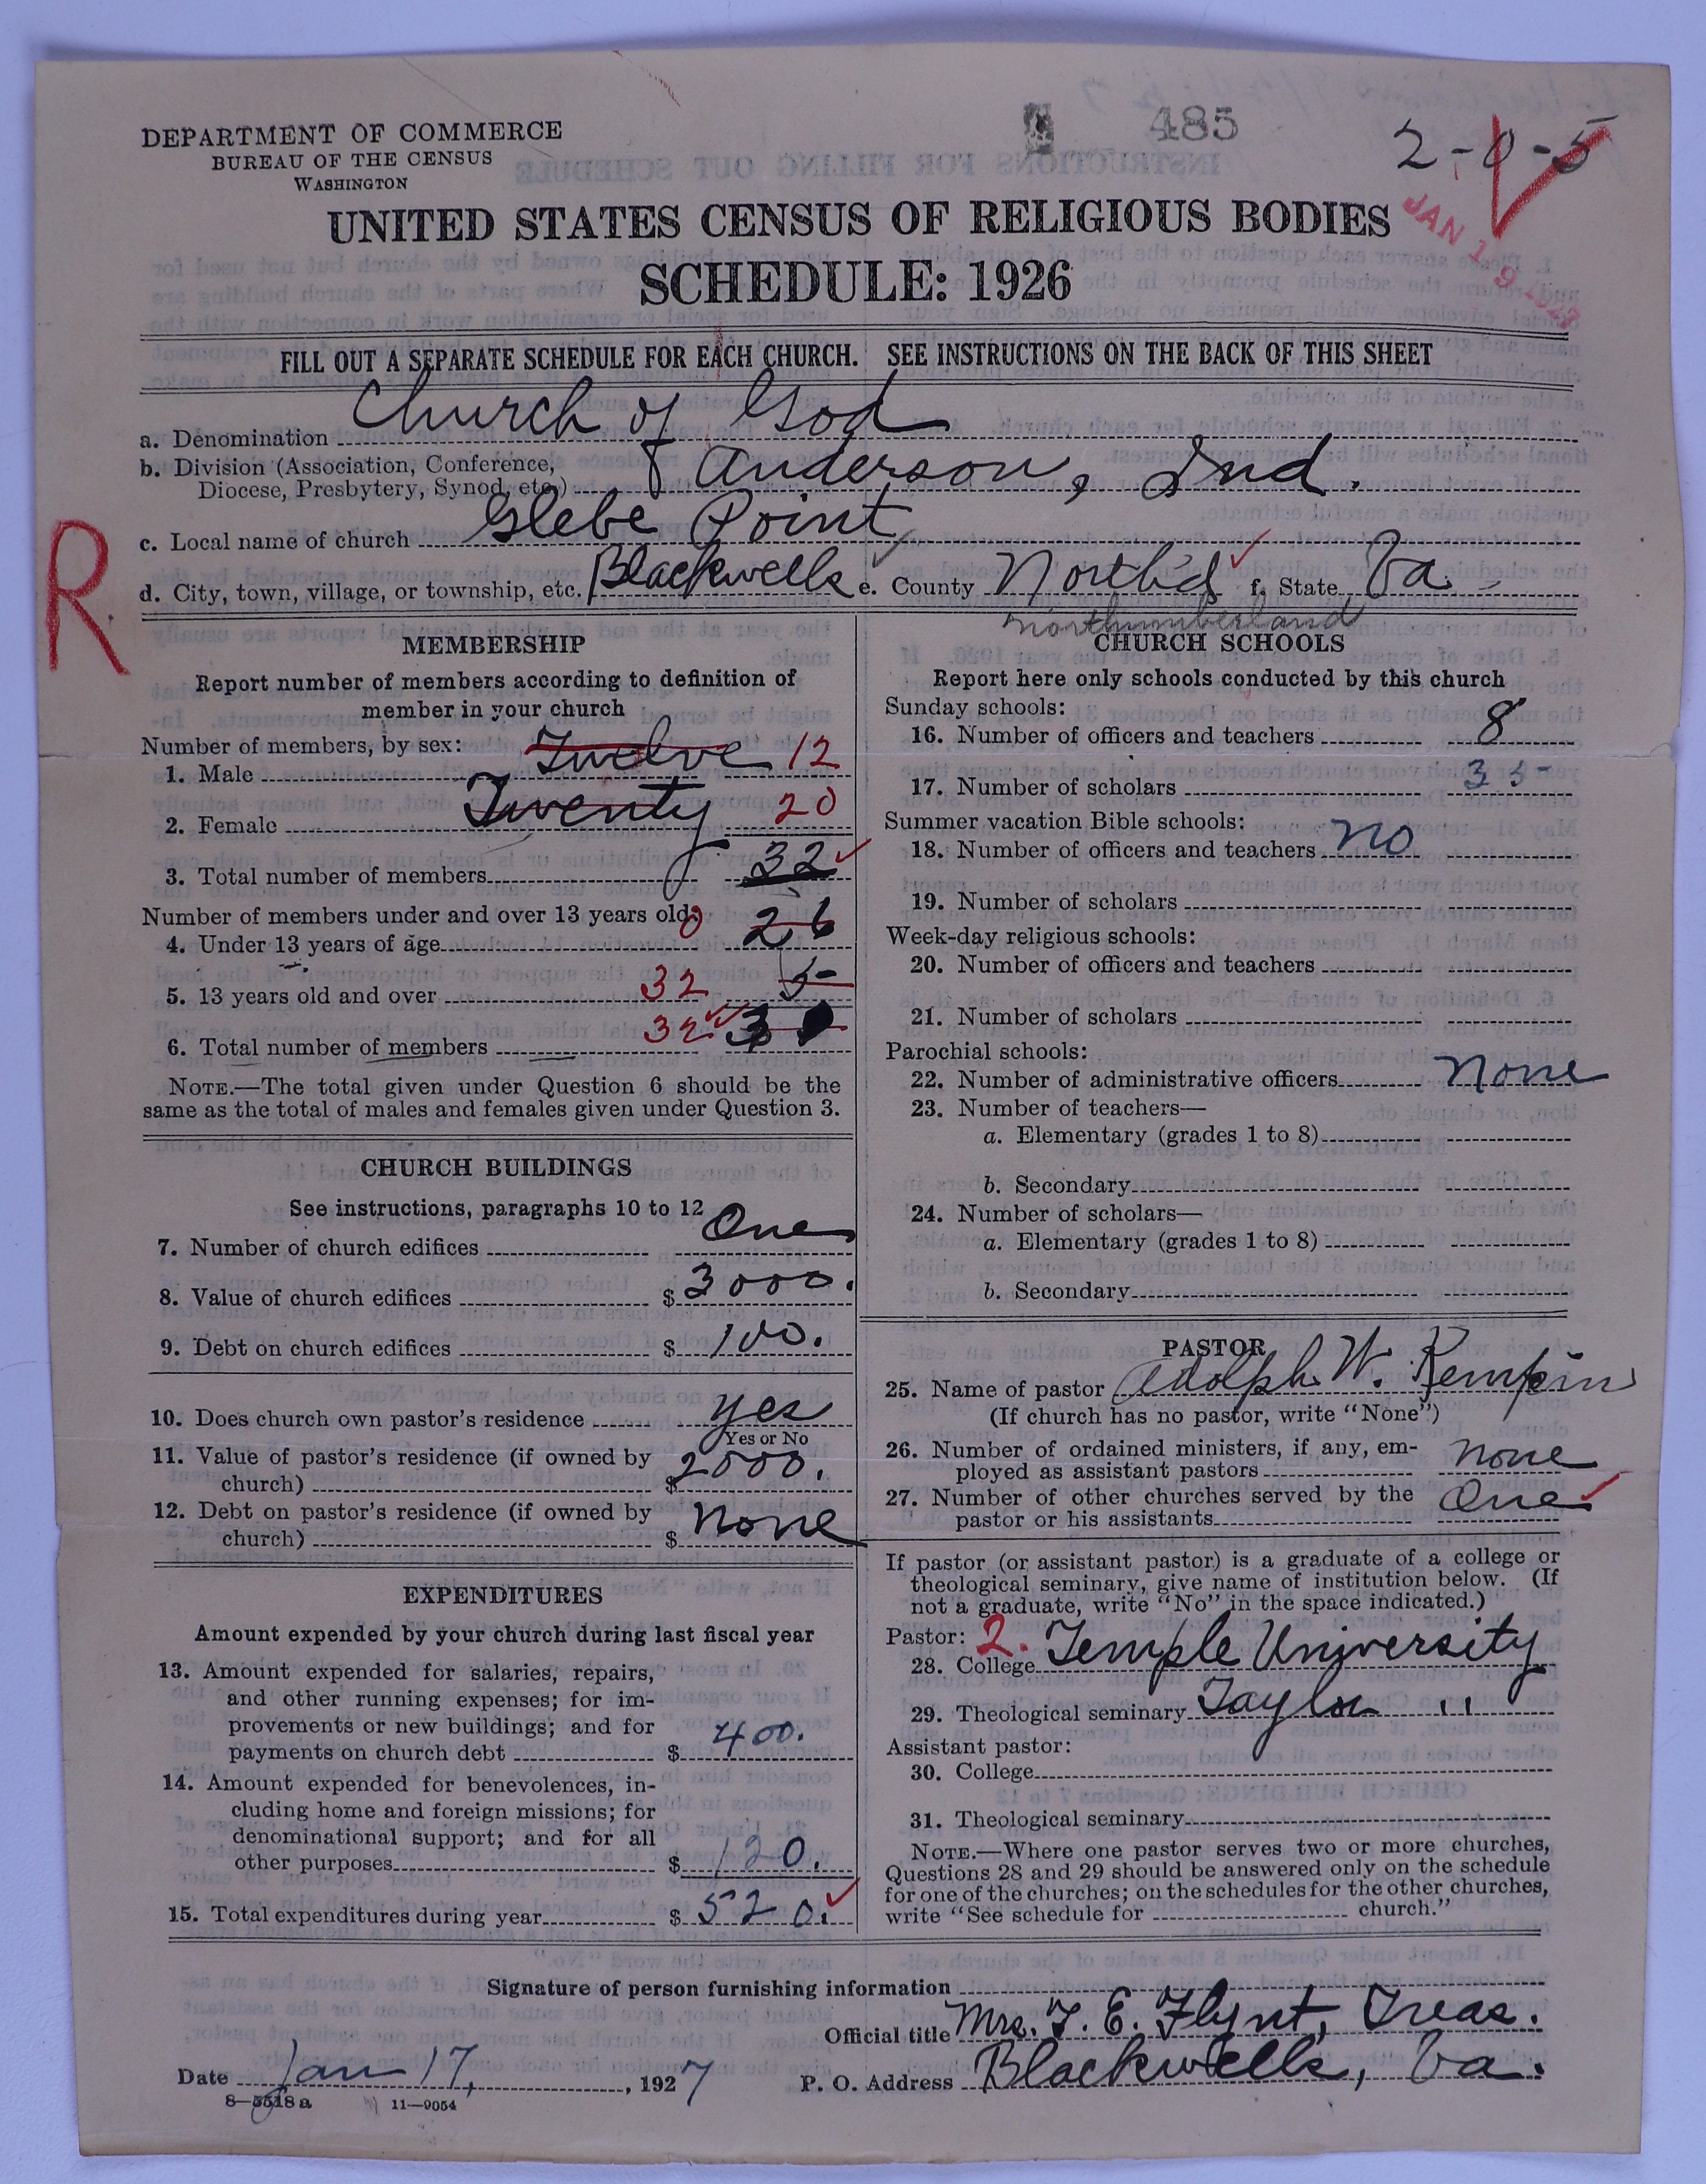 DEPARTMENT OF COMMERCE
BUREAU OF THE CENSUS
WASHINGTON
485
2-0-5
JAN 19 1927
UNITED STATES CENSUS OF RELIGIOUS BODIES
SCHEDULE: 1926
FILL OUT A SEPARATE SCHEDULE FOR EACH CHURCH. SEE INSTRUCTIONS ON THE BACK OF THIS SHEET
a. Denomination Church of God
b. Division (Association, Conference,
Diocese, Presbytery, Synod, etc.) of Anderson, Ind.
c. Local name of church Glebe Point
R
d. City, town, village, or township, etc. Blackwells e. County North'd f. State Va.
Northumberland
MEMBERSHIP
Report number of members according to definition of
member in your church
Number of members, by sex:
1. Male Twelve 12
2. Female Twenty 20
3. Total number of members 32
Number of members under and over 13 years old:
4. Under 13 years of age 0 26
5. 13 years old and over 32 5
6. Total number of members 32 3
NOTE.—The total given under Question 6 should be the
same as the total of males and females given under Question 3.
CHURCH BUILDINGS
See instructions, paragraphs 10 to 12
7. Number of church edifices One
8. Value of church edifices $ 3000.
9. Debt on church edifices $ 100.
10. Does church own pastor's residence yes
Yes or No
11. Value of pastor's residence (if owned by
church) $ 2000.
12. Debt on pastor's residence (if owned by
church) $ None
EXPENDITURES
Amount expended by your church during last fiscal year
13. Amount expended for salaries, repairs,
and other running expenses; for im-
provements or new buildings; and for
payments on church debt $ 400.
14. Amount expended for benevolences, in-
cluding home and foreign missions; for
denominational support; and for all
other purposes $ 120.
15. Total expenditures during year $ 520.
CHURCH SCHOOLS
Report here only schools conducted by this church
Sunday schools:
16. Number of officers and teachers 8
17. Number of scholars 35
Summer vacation Bible schools:
18. Number of officers and teachers no
19. Number of scholars
Week-day religious schools:
20. Number of officers and teachers
21. Number of scholars
Parochial schools:
22. Number of administrative officers None
23. Number of teachers—
a. Elementary (grades 1 to 8)
b. Secondary
24. Number of scholars—
a. Elementary (grades 1 to 8)
b. Secondary
PASTOR
25. Name of pastor Adolph W. Kempin
(If church has no pastor, write "None")
26. Number of ordained ministers, if any, em-
ployed as assistant pastors None
27. Number of other churches served by the
pastor or his assistants One
If pastor (or assistant pastor) is a graduate of a college or
theological seminary, give name of institution below. (If
not a graduate, write "No" in the space indicated.)
Pastor: 2.
28. College Temple University
29. Theological seminary Taylor "
Assistant pastor:
30. College
31. Theological seminary
NOTE.—Where one pastor serves two or more churches,
Questions 28 and 29 should be answered only on the schedule
for one of the churches; on the schedules for the other churches,
write "See schedule for church."
Signature of person furnishing information
Official title Mrs. T. E. Flynt, Treas.
Date Jan 17, 1927 P. O. Address Blackwells, Va.
8—5518 a 11—9054